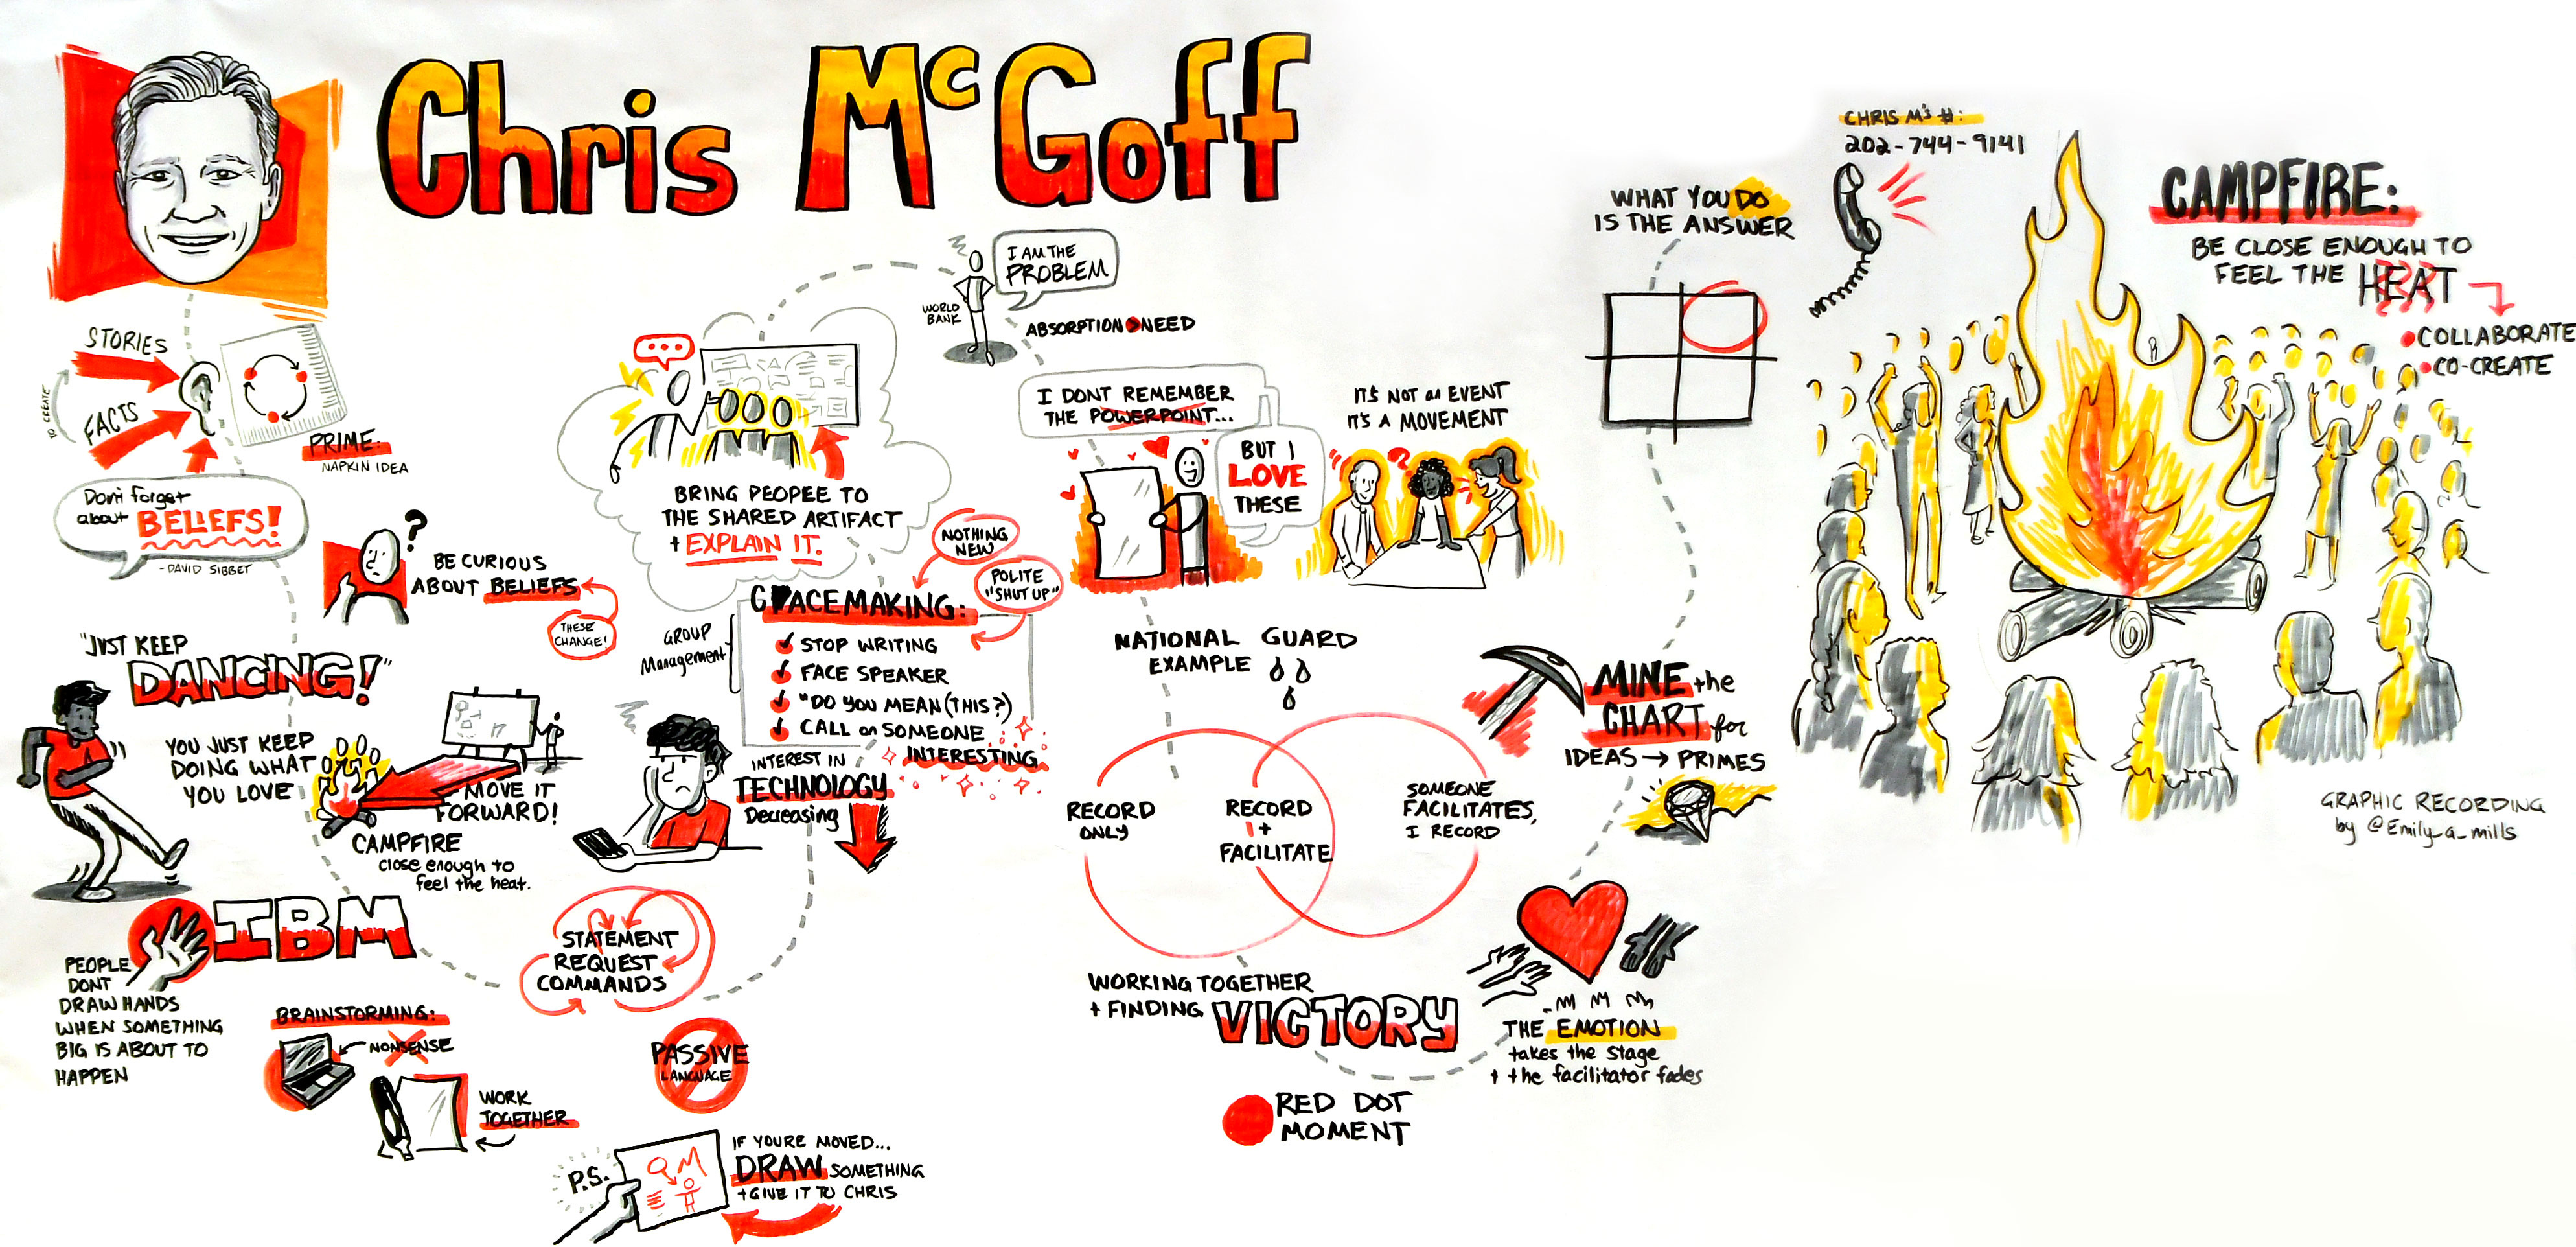 Chris McGoff
STORIES
FACTS
TO CREATE
PRIME:
NAPKIN IDEA
Don't forget
about BELIEFS!
- DAVID SIBBET
BE CURIOUS
ABOUT BELIEFS
THESE
CHANGE!
"JUST KEEP
DANCING!"
YOU JUST KEEP
DOING WHAT
YOU LOVE
MOVE IT
FORWARD!
CAMPFIRE
close enough to
feel the heat.
IBM
PEOPLE
DONT
DRAW HANDS
WHEN SOMETHING
BIG IS ABOUT TO
HAPPEN
BRAINSTORMING:
NONSENSE
WORK
TOGETHER
STATEMENT
REQUEST
COMMANDS
PASSIVE
LANGUAGE
P.S.
IF YOURE MOVED...
DRAW SOMETHING
+ GIVE IT TO CHRIS
BRING PEOPLE TO
THE SHARED ARTIFACT
+ EXPLAIN IT.
WORLD
BANK
I AM THE
PROBLEM
ABSORPTION > NEED
NOTHING
NEW
POLITE
"SHUT UP"
GROUP
Management
SPACEMAKING:
STOP WRITING
FACE SPEAKER
"DO YOU MEAN (THIS?)
CALL on SOMEONE
INTERESTING
INTEREST IN
TECHNOLOGY
Decreasing
I DONT REMEMBER
THE POWERPOINT...
BUT I
LOVE
THESE
IT'S NOT an EVENT
IT'S A MOVEMENT
NATIONAL GUARD
EXAMPLE
RECORD
ONLY
RECORD
+
FACILITATE
SOMEONE
FACILITATES,
I RECORD
WORKING TOGETHER
+ FINDING VICTORY
RED DOT
MOMENT
THE EMOTION
takes the stage
+ the facilitator fades
MINE the
CHART for
IDEAS → PRIMES
WHAT YOU DO
IS THE ANSWER
CHRIS M's #:
202-744-9141
CAMPFIRE:
BE CLOSE ENOUGH TO
FEEL THE HEAT
COLLABORATE
CO-CREATE
GRAPHIC RECORDING
by @Emily_a_mills